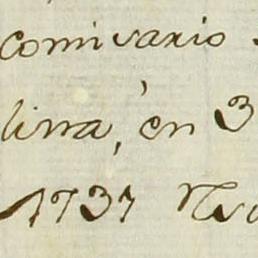 comisario
lina, en 3
1737